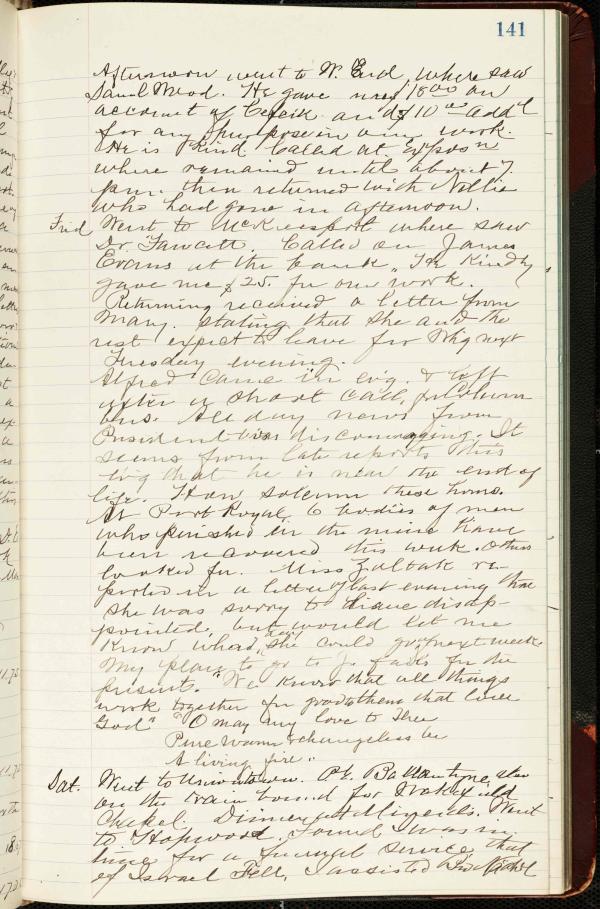 141
Afternoon went to W. End, where saw
Saml Wood. He gave me $18.00 on
account of and $10.00 addl
for any purpose in our work.
He is kind. Called at Exposn
where remained until about 7.
p.m. then returned with Nellie
who had gone in afternoon.
Frid. Went to McKeesport where saw
Dr. Fawcett. Called on James
Evans at the bank. He kindly
gave me $25. for our work.
Returning received a letter from
Mary. stating that she and the
rest expect to leave for Whg next
Tuesday evening.
Alfred came in evg. & left
after a short call, for Colum
bus. All day news from
President was discouraging. It
seems from late reports this
evg that he is near the end of
life. How solemn these hours.
At Port Royal 6 bodies of men
who perished in the mine have
been recovered this week. Others
looked for. Miss re-
ported in a letter of last evening that
she was sorry to have disap-
pointed, but would let me
know when she could go next week.
My plan to go to J. fades for the
present. "We know that all things
work together for good to them that love
God" "O may my love to Thee
Pure warm & changeless be
A living fire."
Sat. Went to Uniontown. Ballantyne also
on the train bound for Wakefield
Chapel. Dinner at Went
to Hopwood. Found I was in
time for a funeral service, that
of Israel I assisted